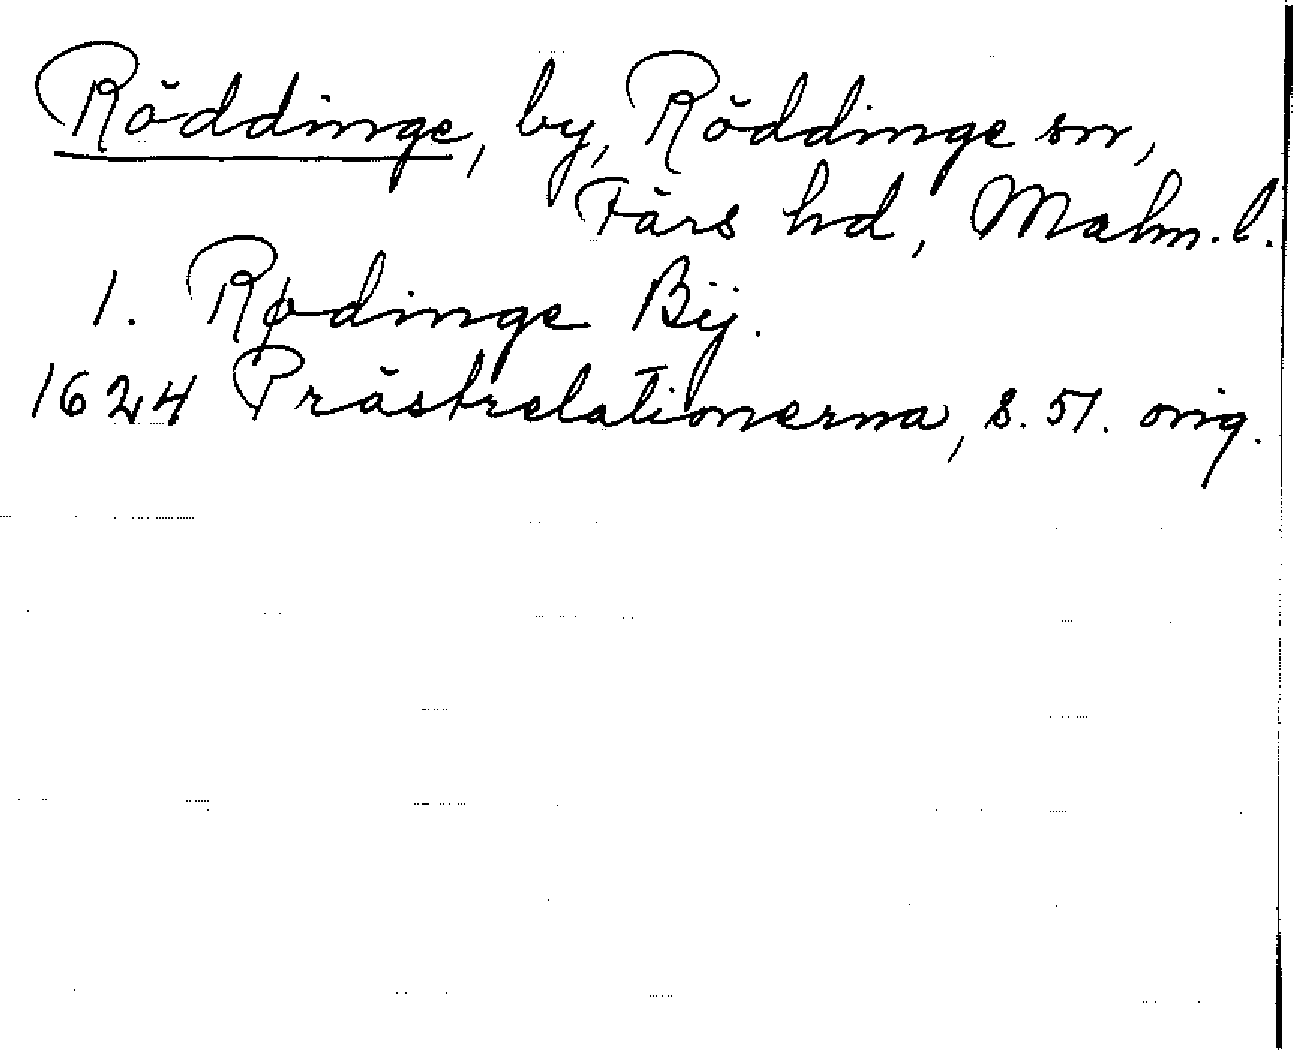 Röddinge, by, Röddinge sn,
Färs hd, Malm. l.
1. Rødinge Bÿ.
1624 Prästrelationerna, s. 51. orig.